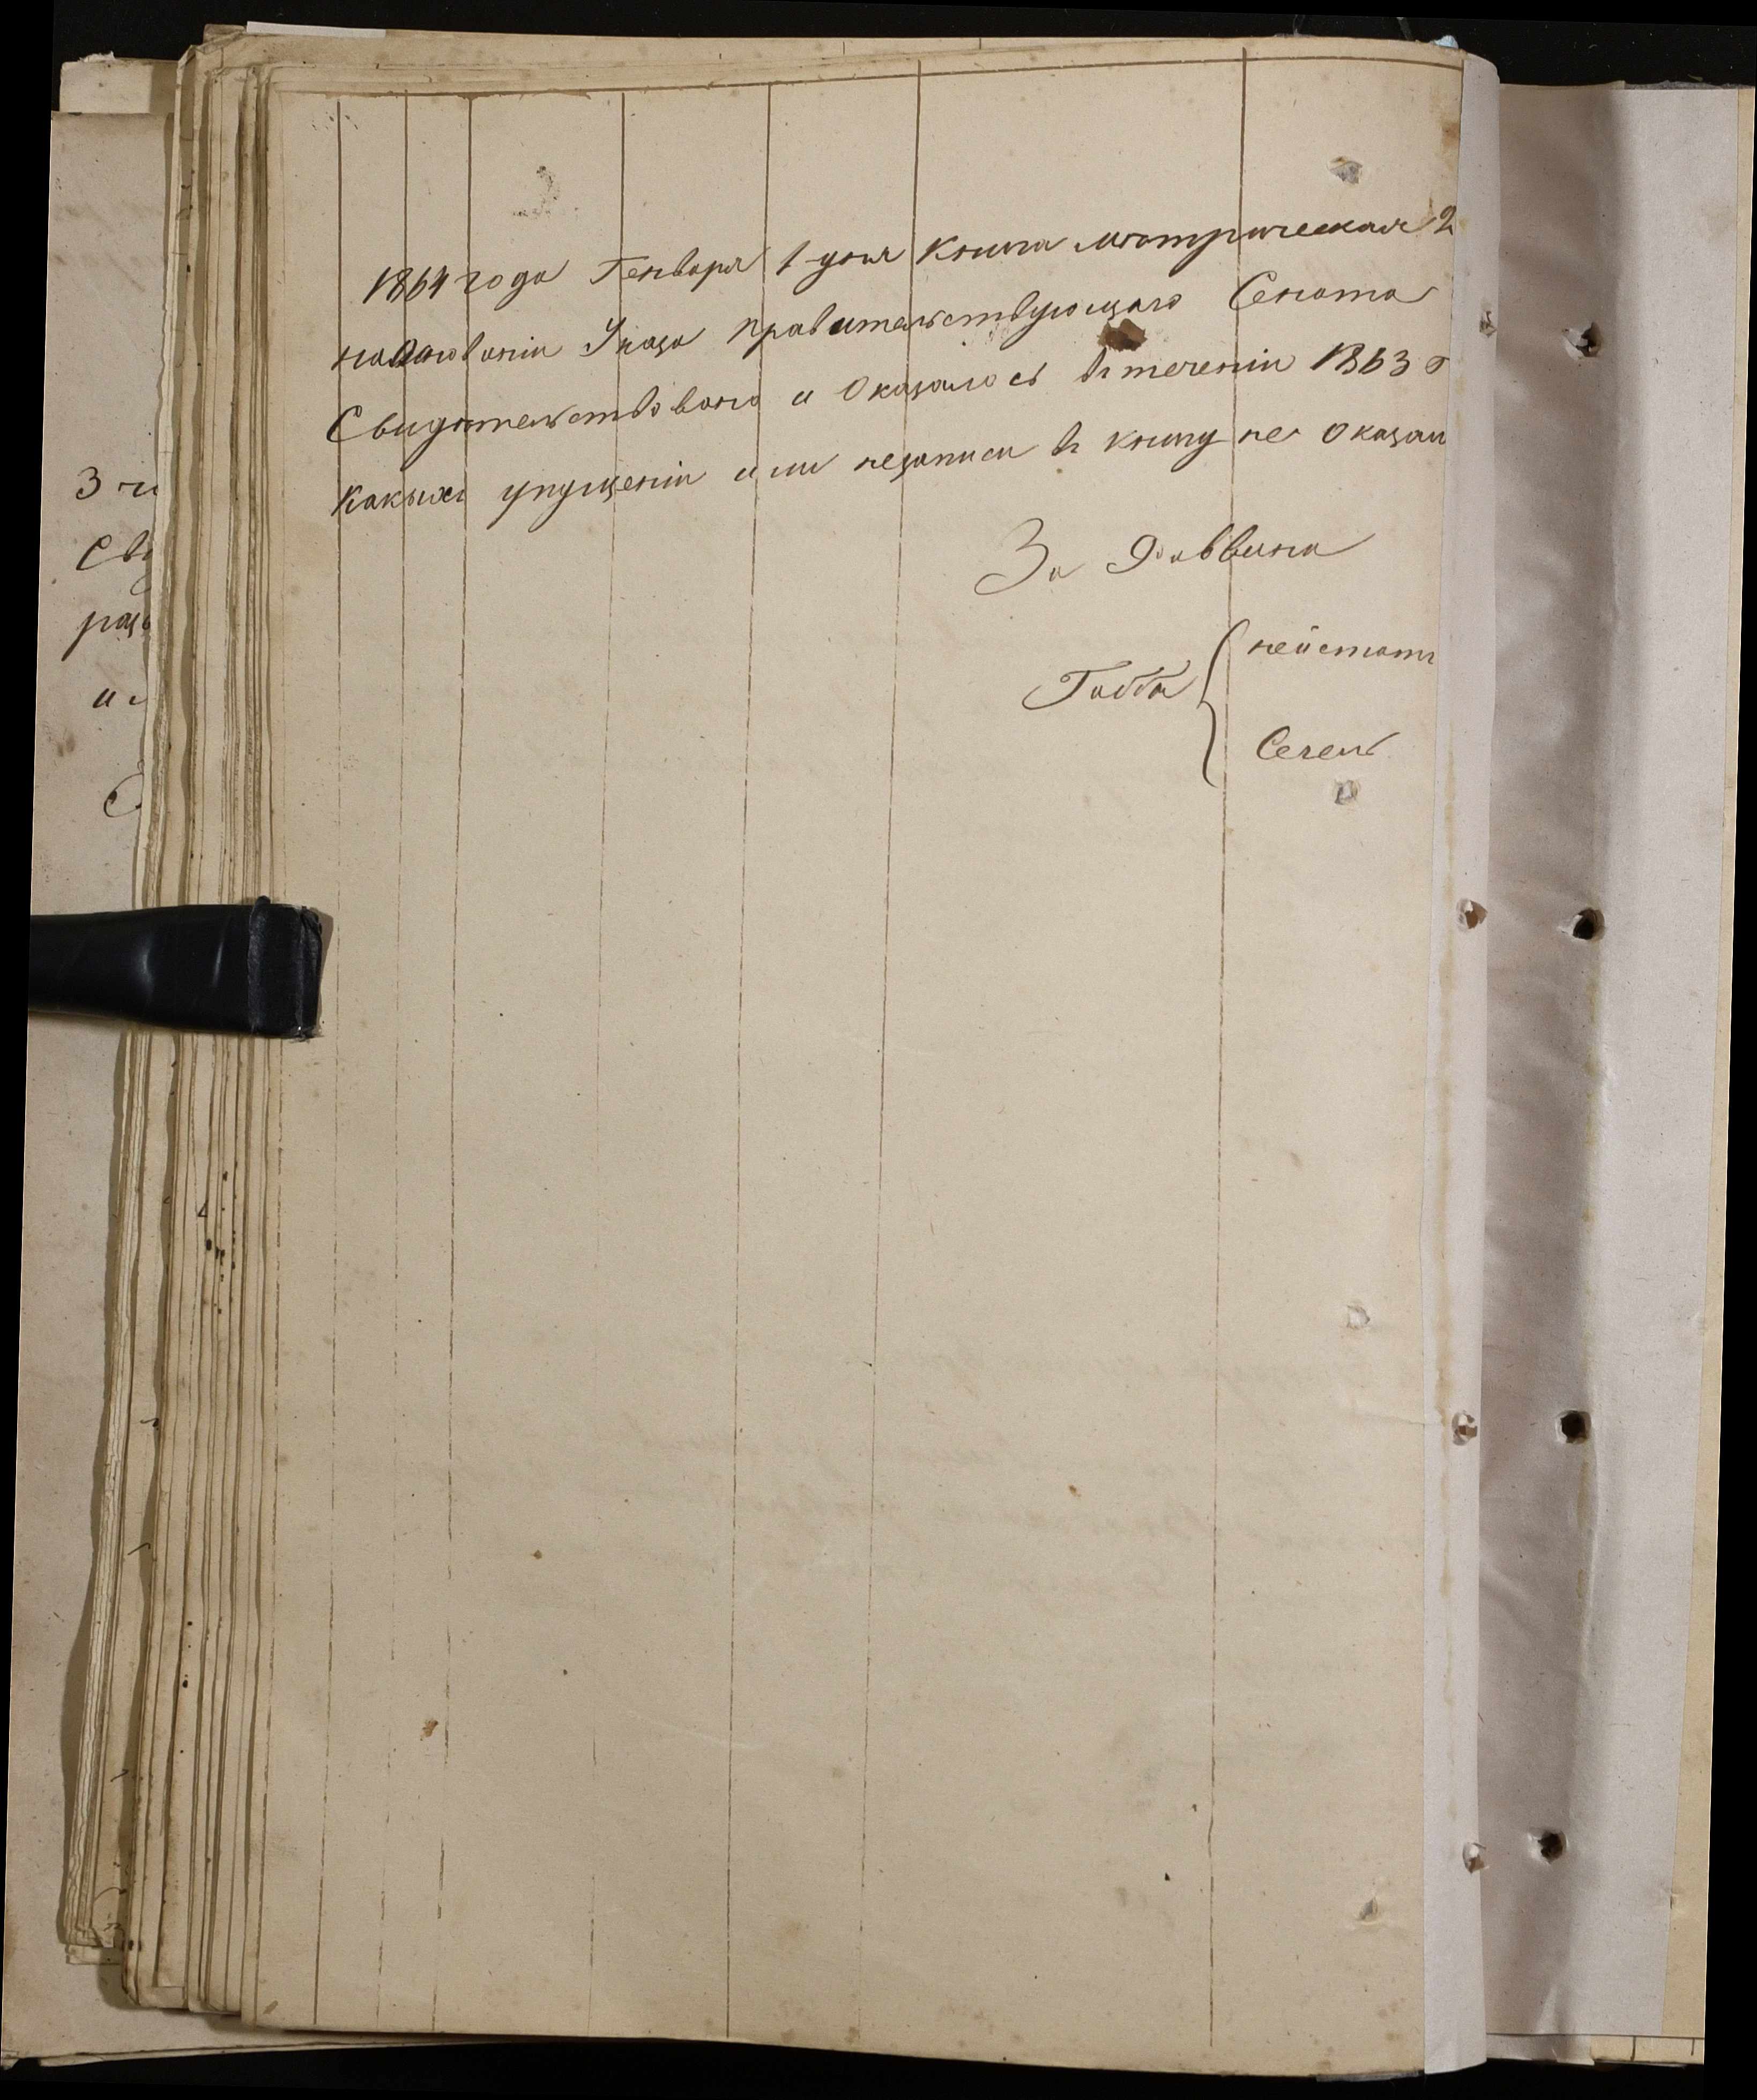 1864 года Генваря 1 дня Книга метрическая 2
на основании Указа правительствующаго Сената
Свидетельствовано и Оказалось в течении 1863 г
Каких упущении или незаписи в книгу не Оказал
За Раввина
Габба
Сечен
3
Сви
разъ
и
С